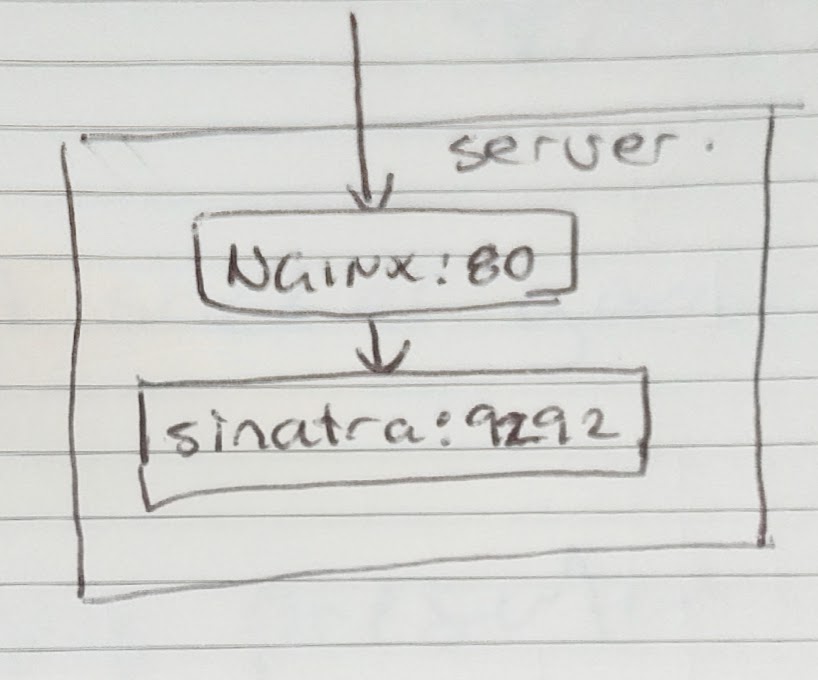 server.
NGINX:80
sinatra:9292